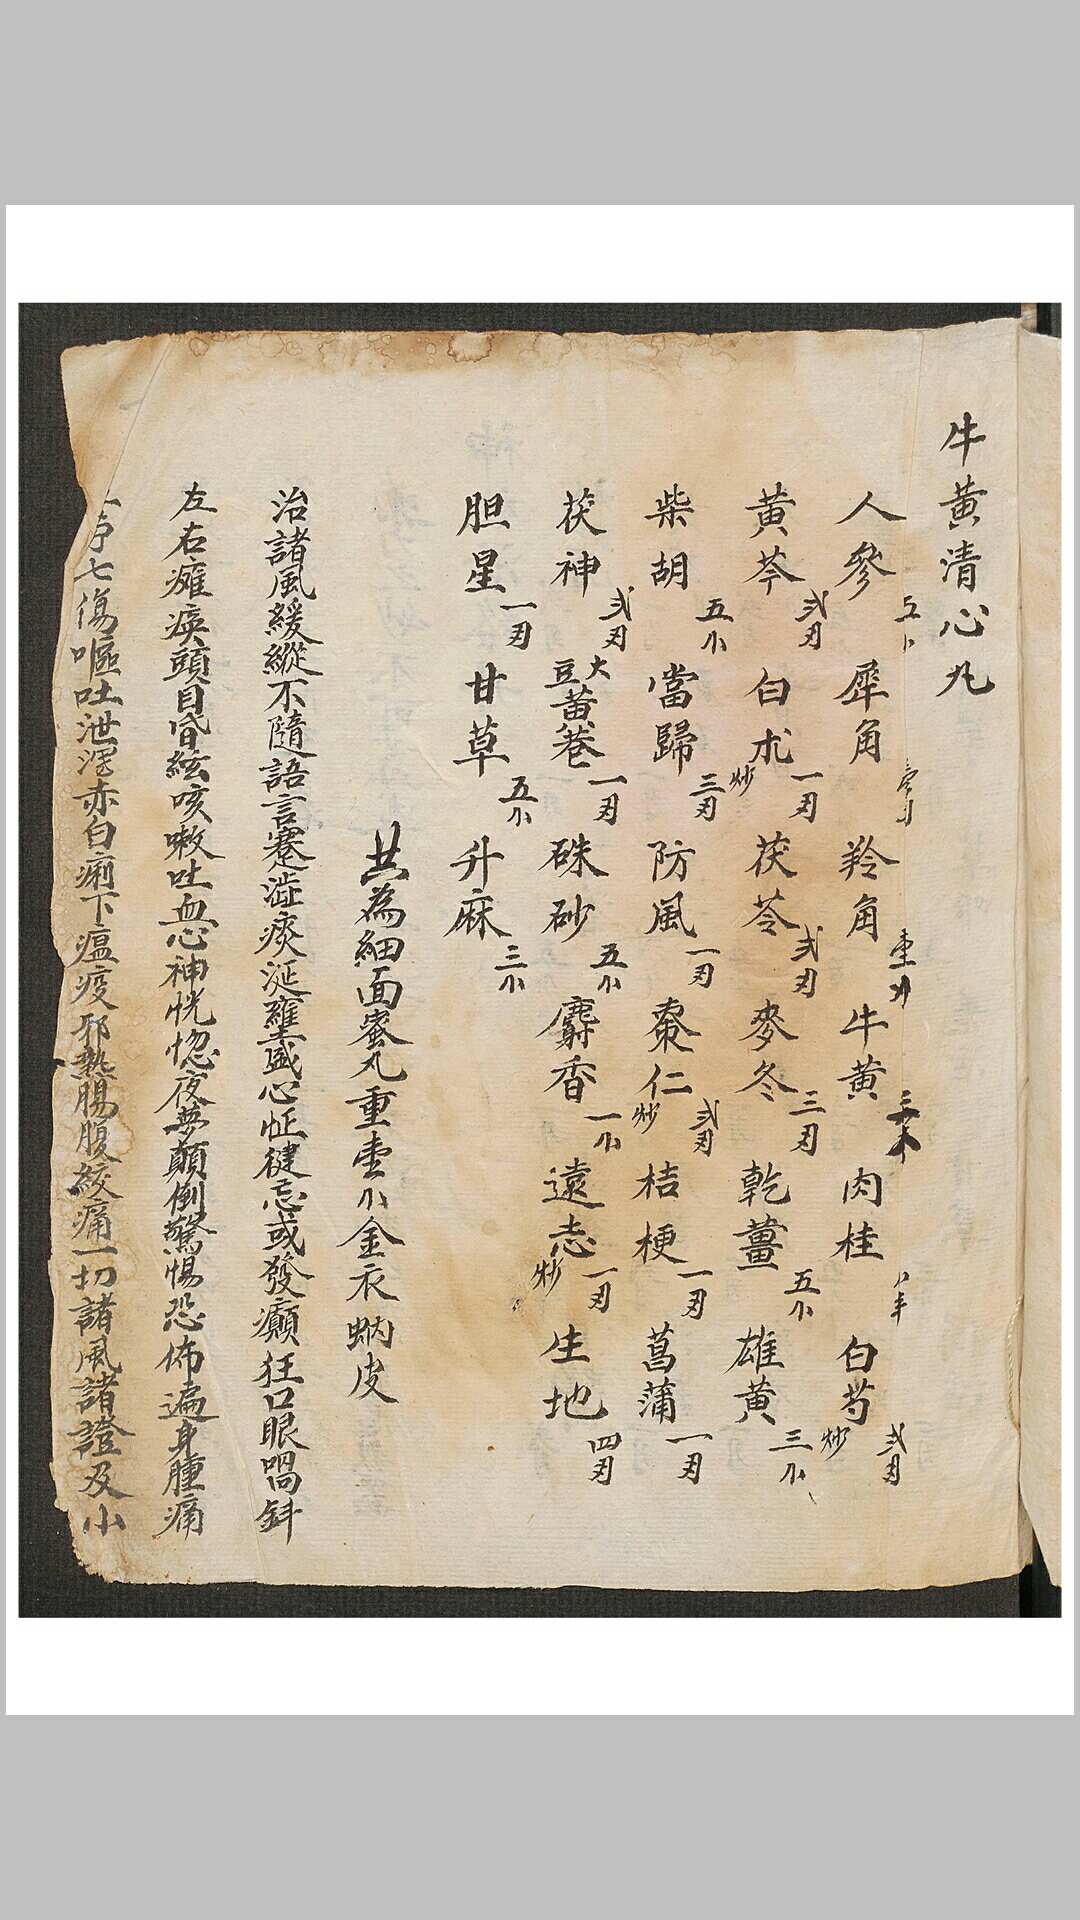 牛黄清心丸
人參 五 犀角 羚角 壹 牛黄 三 肉桂 白芍 炒 弍刃
黄芩 弍刃 白朮 炒 一刃 茯苓 弍刃 麥冬 三刃 乾薑 五小 雄黄 三小
柴胡 五小 當歸 三刃 防風 一刃 棗仁 炒 弍刃 桔梗 一刃 菖蒲 一刃
茯神 弍刃 大豆黄卷 一刃 硃砂 五小 麝香 一小 遠志 炒 一刃 生地 四刃
胆星 一刃 甘草 五小 升麻 三小
共為細面蜜丸重壹小金衣蚋皮
治諸風緩縱不隨語言蹇澁痰涎壅盛心怔健忘或發癲狂口眼喎斜
左右癱瘓頭目昏絃咳嗽吐血心神恍惚夜夢顛倒驚惕恐佈遍身腫痛
七傷嘔吐泄瀉赤白痢下瘟疫邪熱腸腹絞痛一切諸風諸證及小